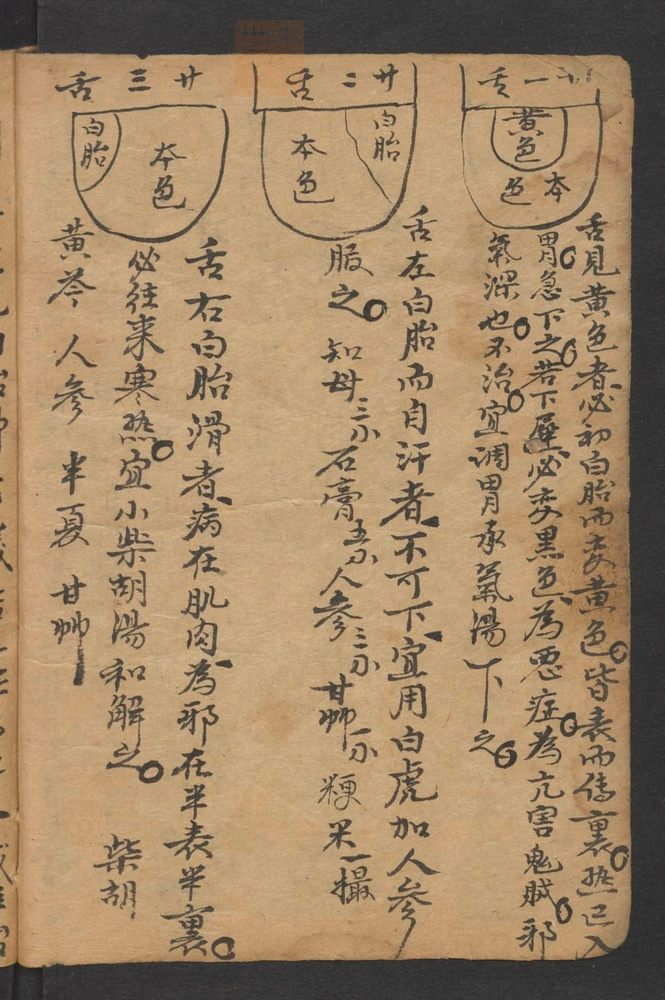 廿一舌
黄色
本色
舌見黄色者必初白胎而变黄色皆表而傳裏热已入
胃急下之若下遲必变黑色為悪症為亢害鬼賊邪
氣深也不治宜調胃承氣湯下之
廿二舌
白胎
本色
舌左白胎而自汗者不可下宜用白虎加人參
服之 知母三分 石膏五分 人參三分 甘艸一分 粳米一撮
廿三舌
本色
白胎
舌右白胎滑者病在肌肉為邪在半表半裏
必往来寒热宜小柴胡湯和解之 柴胡
黄芩 人參 半夏 甘艸